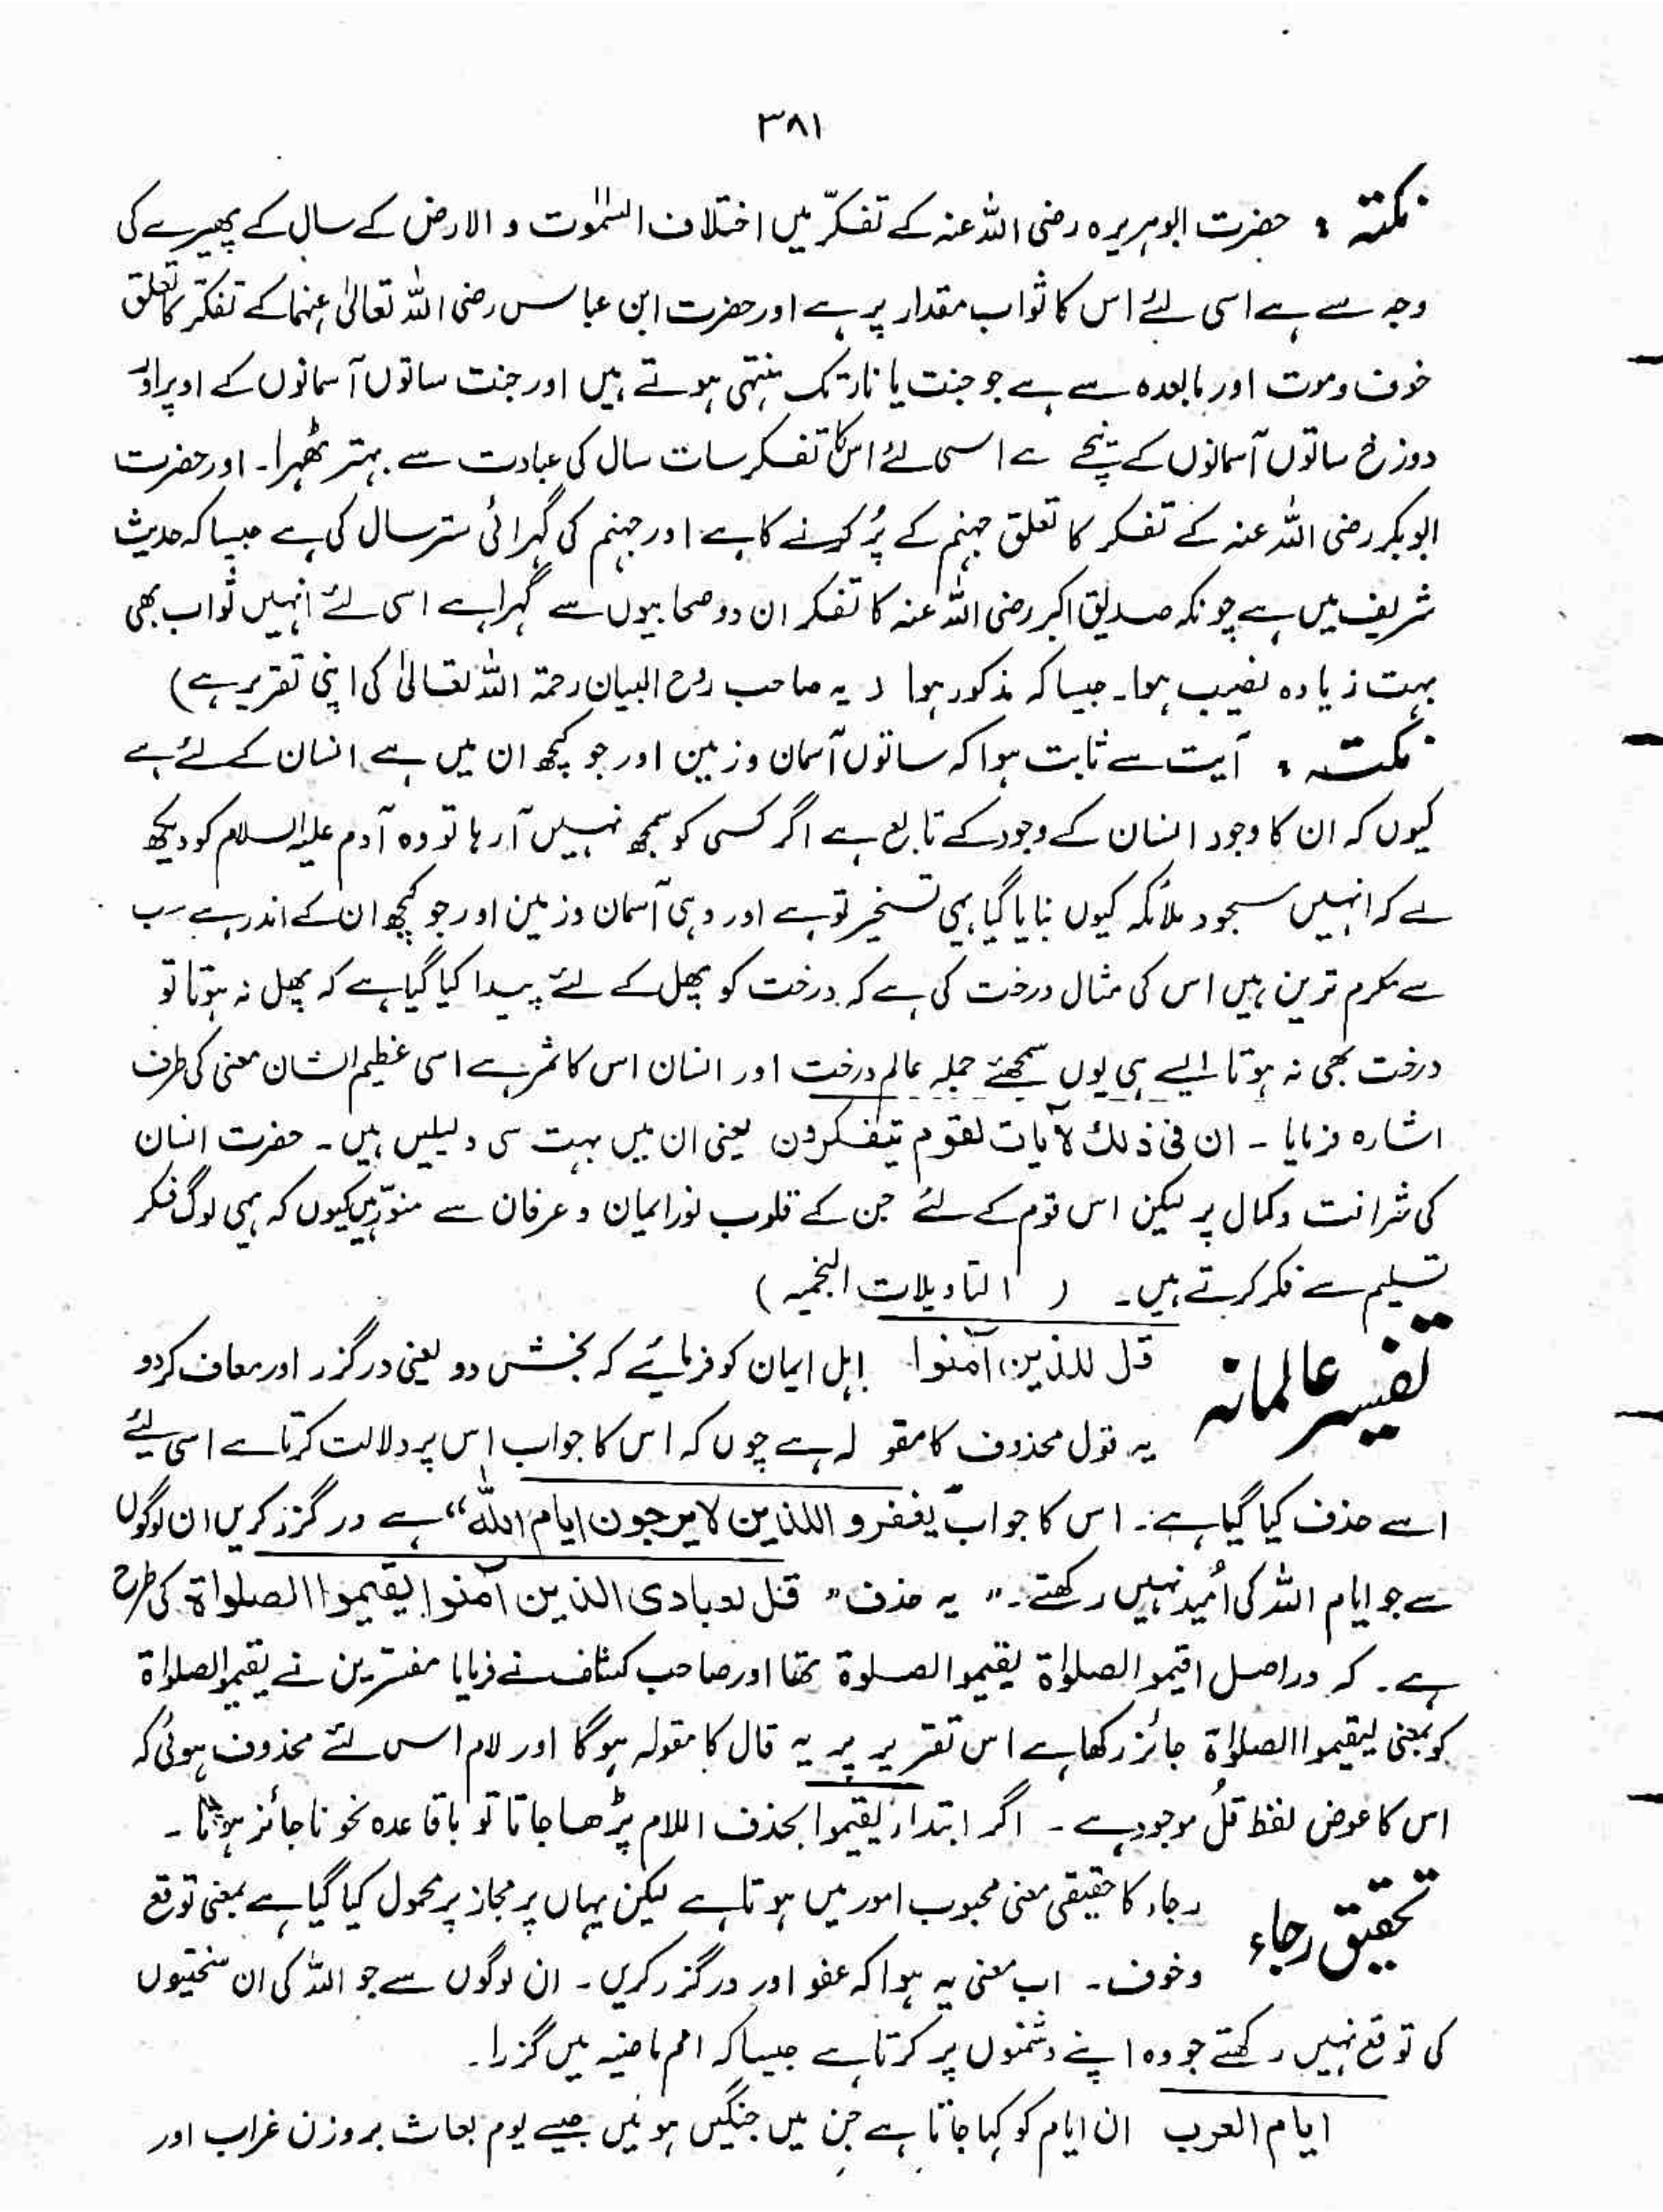 ۳۸۱
نکتہ : حضرت ابوہریرہ رضی اللہ عنہ کے تفکّر میں اختلاف السمٰوٰت و الارض کے سال کے پھیرے کی
وجہ سے ہے اسی لئے اس کا ثواب مقدار پر ہے اور حضرت ابن عباس رضی اللہ تعالیٰ عنہما کے تفکّر کا تعلق
خوف و موت اور مابعدہ سے ہے جو جنت یا نار تک منتہی ہوتے ہیں اور جنت ساتوں آسمانوں کے اوپر اور
دوزخ ساتوں آسمانوں کے نیچے ہے اسی لئے اس کا تفکر سات سال کی عبادت سے بہتر ٹھہرا۔ اور حضرت
ابوبکر رضی اللہ عنہ کے تفکر کا تعلق جہنم کے پُر کرنے کا ہے اور جہنم کی گہرائی ستر سال کی ہے جیسا کہ حدیث
شریف میں ہے چونکہ صدیق اکبر رضی اللہ عنہ کا تفکر ان دو صحابیوں سے گہرا ہے اسی لئے انہیں ثواب بھی
بہت زیادہ نصیب ہوا۔ جیسا کہ مذکور ہوا ( یہ صاحب روح البیان رحمۃ اللہ تعالیٰ کی اپنی تقریر ہے)
نکتہ : آیت سے ثابت ہوا کہ ساتوں آسمان و زمین اور جو کچھ ان میں ہے انسان کے لئے ہے
کیوں کہ ان کا وجود انسان کے وجود کے تابع ہے اگر کسی کو سمجھ نہیں آرہا تو وہ آدم علیہ السلام کو دیکھ
لے کہ انہیں مسجود ملائکہ کیوں بنایا گیا یہی تسخیر تو ہے اور وہی آسمان و زمین اور جو کچھ ان کے اندر ہے سب
سے مکرم ترین ہیں اس کی مثال درخت کی ہے کہ درخت کو پھل کے لئے پیدا کیا گیا ہے کہ پھل نہ ہوتا تو
درخت بھی نہ ہوتا ایسے ہی یوں سمجھئے جملہ عالم درخت اور انسان اس کا ثمر ہے اسی عظیم الشان معنی کی طرف
اشارہ فرمایا ۔ ان فی ذلک لآیات لقوم یتفکرون یعنی ان میں بہت سی دلیلیں ہیں۔ حضرت انسان
کی شرافت و کمال پر لیکن اس قوم کے لئے جن کے قلوب نور ایمان و عرفان سے منوّر ہیں کیوں کہ یہی لوگ فکر
تسلیم سے فکر کرتے ہیں۔ ( التاویلات النجمیہ )
تفسیر عالمانہ قل للذین آمنوا اہل ایمان کو فرمائیے کہ بخشش دو یعنی درگزر اور معاف کردو
یہ قول محذوف کا مقولہ ہے چوں کہ اس کا جواب اس پر دلالت کرتا ہے اسی لئے
اسے حذف کیا گیا ہے۔ اس کا جواب یغفرو اللذین لا یرجون ایام اللہ“ ہے درگزر کریں ان لوگوں
سے جو ایام اللہ کی اُمید نہیں رکھتے۔“ یہ حذف ” قل لعبادی الذین آمنوا یقیموا الصلواۃ کی طرح
ہے۔ کہ دراصل اقیموا الصلواۃ یقیموا الصلوۃ تھا اور صاحب کشاف نے فرمایا مفسّرین نے یقیموا الصلواۃ
کو بمعنی لیقیموا الصلواۃ جائز رکھا ہے اس تقریر پر یہ قال کا مقولہ ہوگا اور لام اس لئے محذوف ہوئی کہ
اس کا عوض لفظ قلُ موجود ہے ۔ اگر ابتداءً یقیموا بحذف اللام پڑھا جاتا تو باقاعدہ نحو ناجائز ہوتا۔
تحقیق رجاء رجاء کا حقیقی معنی محبوب امور میں ہوتا ہے لیکن یہاں پر مجاز پر محمول کیا گیا ہے بمعنی توقع
و خوف۔ اب معنی یہ ہوا کہ عفو اور درگزر کریں۔ ان لوگوں سے جو اللہ کی ان سختیوں
کی توقع نہیں رکھتے جو وہ اپنے دشمنوں پر کرتا ہے جیسا کہ امم ماضیہ میں گزرا۔
ایام العرب ان ایام کو کہا جاتا ہے جن میں جنگیں ہوئیں جیسے یوم بعاث بروزن غراب اور